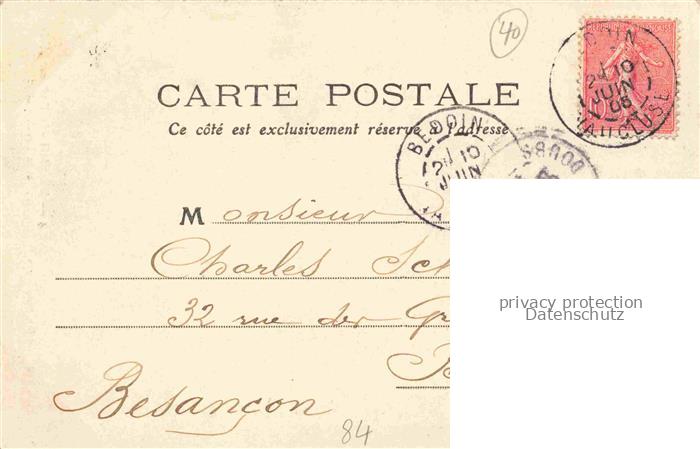 40
BEDOIN
24 10
JUIN
06
VAUCLUSE
CARTE POSTALE
Ce côté est exclusivement réservé à l'adresse
BEDOIN
24 10
JUIN
DOUBS
Monsieur
Charles Sch
32 rue des Gr
Besançon
84
privacy protection
Datenschutz